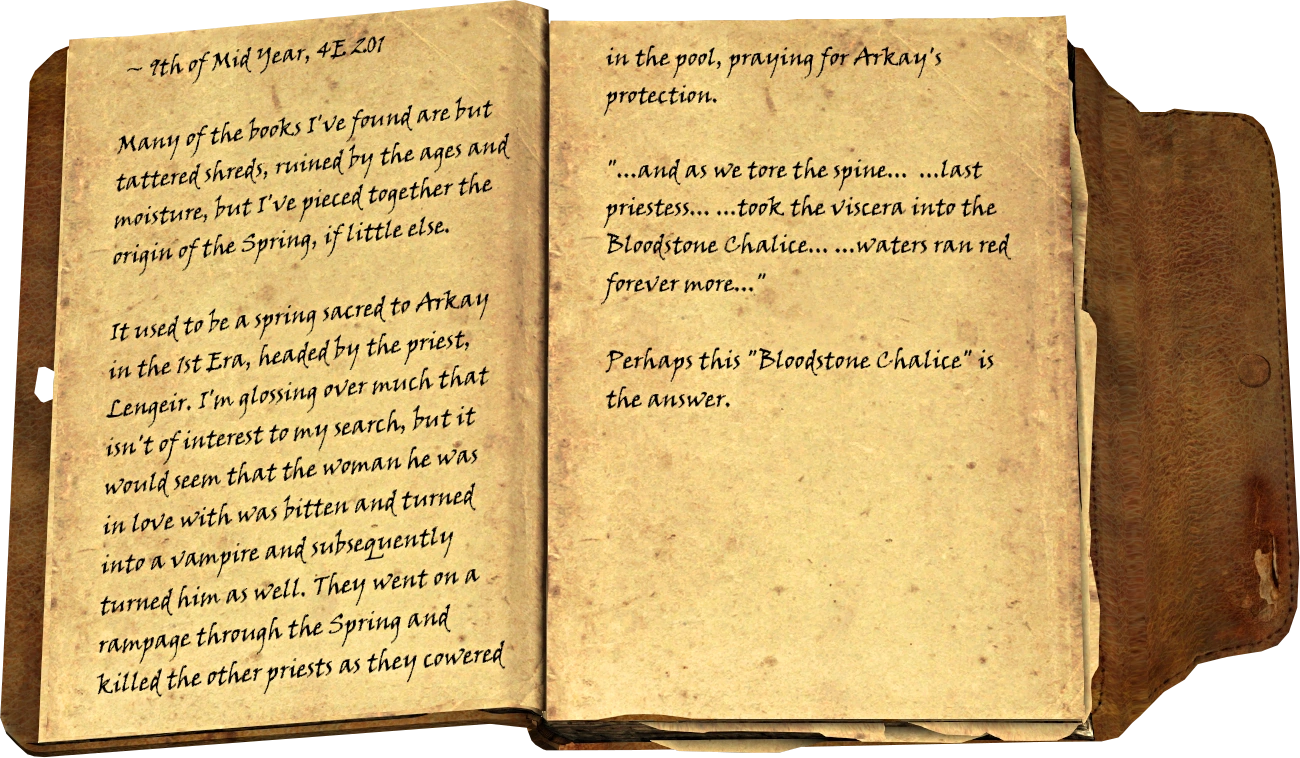 ~ 9th of Mid Year, 4E 201
Many of the books I've found are but
tattered shreds, ruined by the ages and
moisture, but I've pieced together the
origin of the Spring, if little else.
It used to be a spring sacred to Arkay
in the 1st Era, headed by the priest,
Lengeir. I'm glossing over much that
isn't of interest to my search, but it
would seem that the woman he was
in love with was bitten and turned
into a vampire and subsequently
turned him as well. They went on a
rampage through the Spring and
killed the other priests as they cowered
in the pool, praying for Arkay's
protection.
"...and as we tore the spine... ...last
priestess... ...took the viscera into the
Bloodstone Chalice... ...waters ran red
forever more..."
Perhaps this "Bloodstone Chalice" is
the answer.